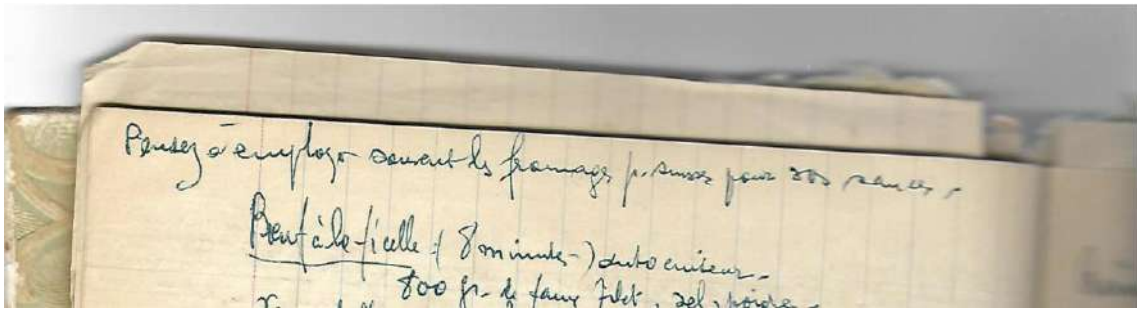 Pensez à employer souvent les fromages p. suisses pour vos sauces.
Bœuf à la ficelle (8 minutes) autocuiseur.
800 gr. de faux filet, sel, poivre